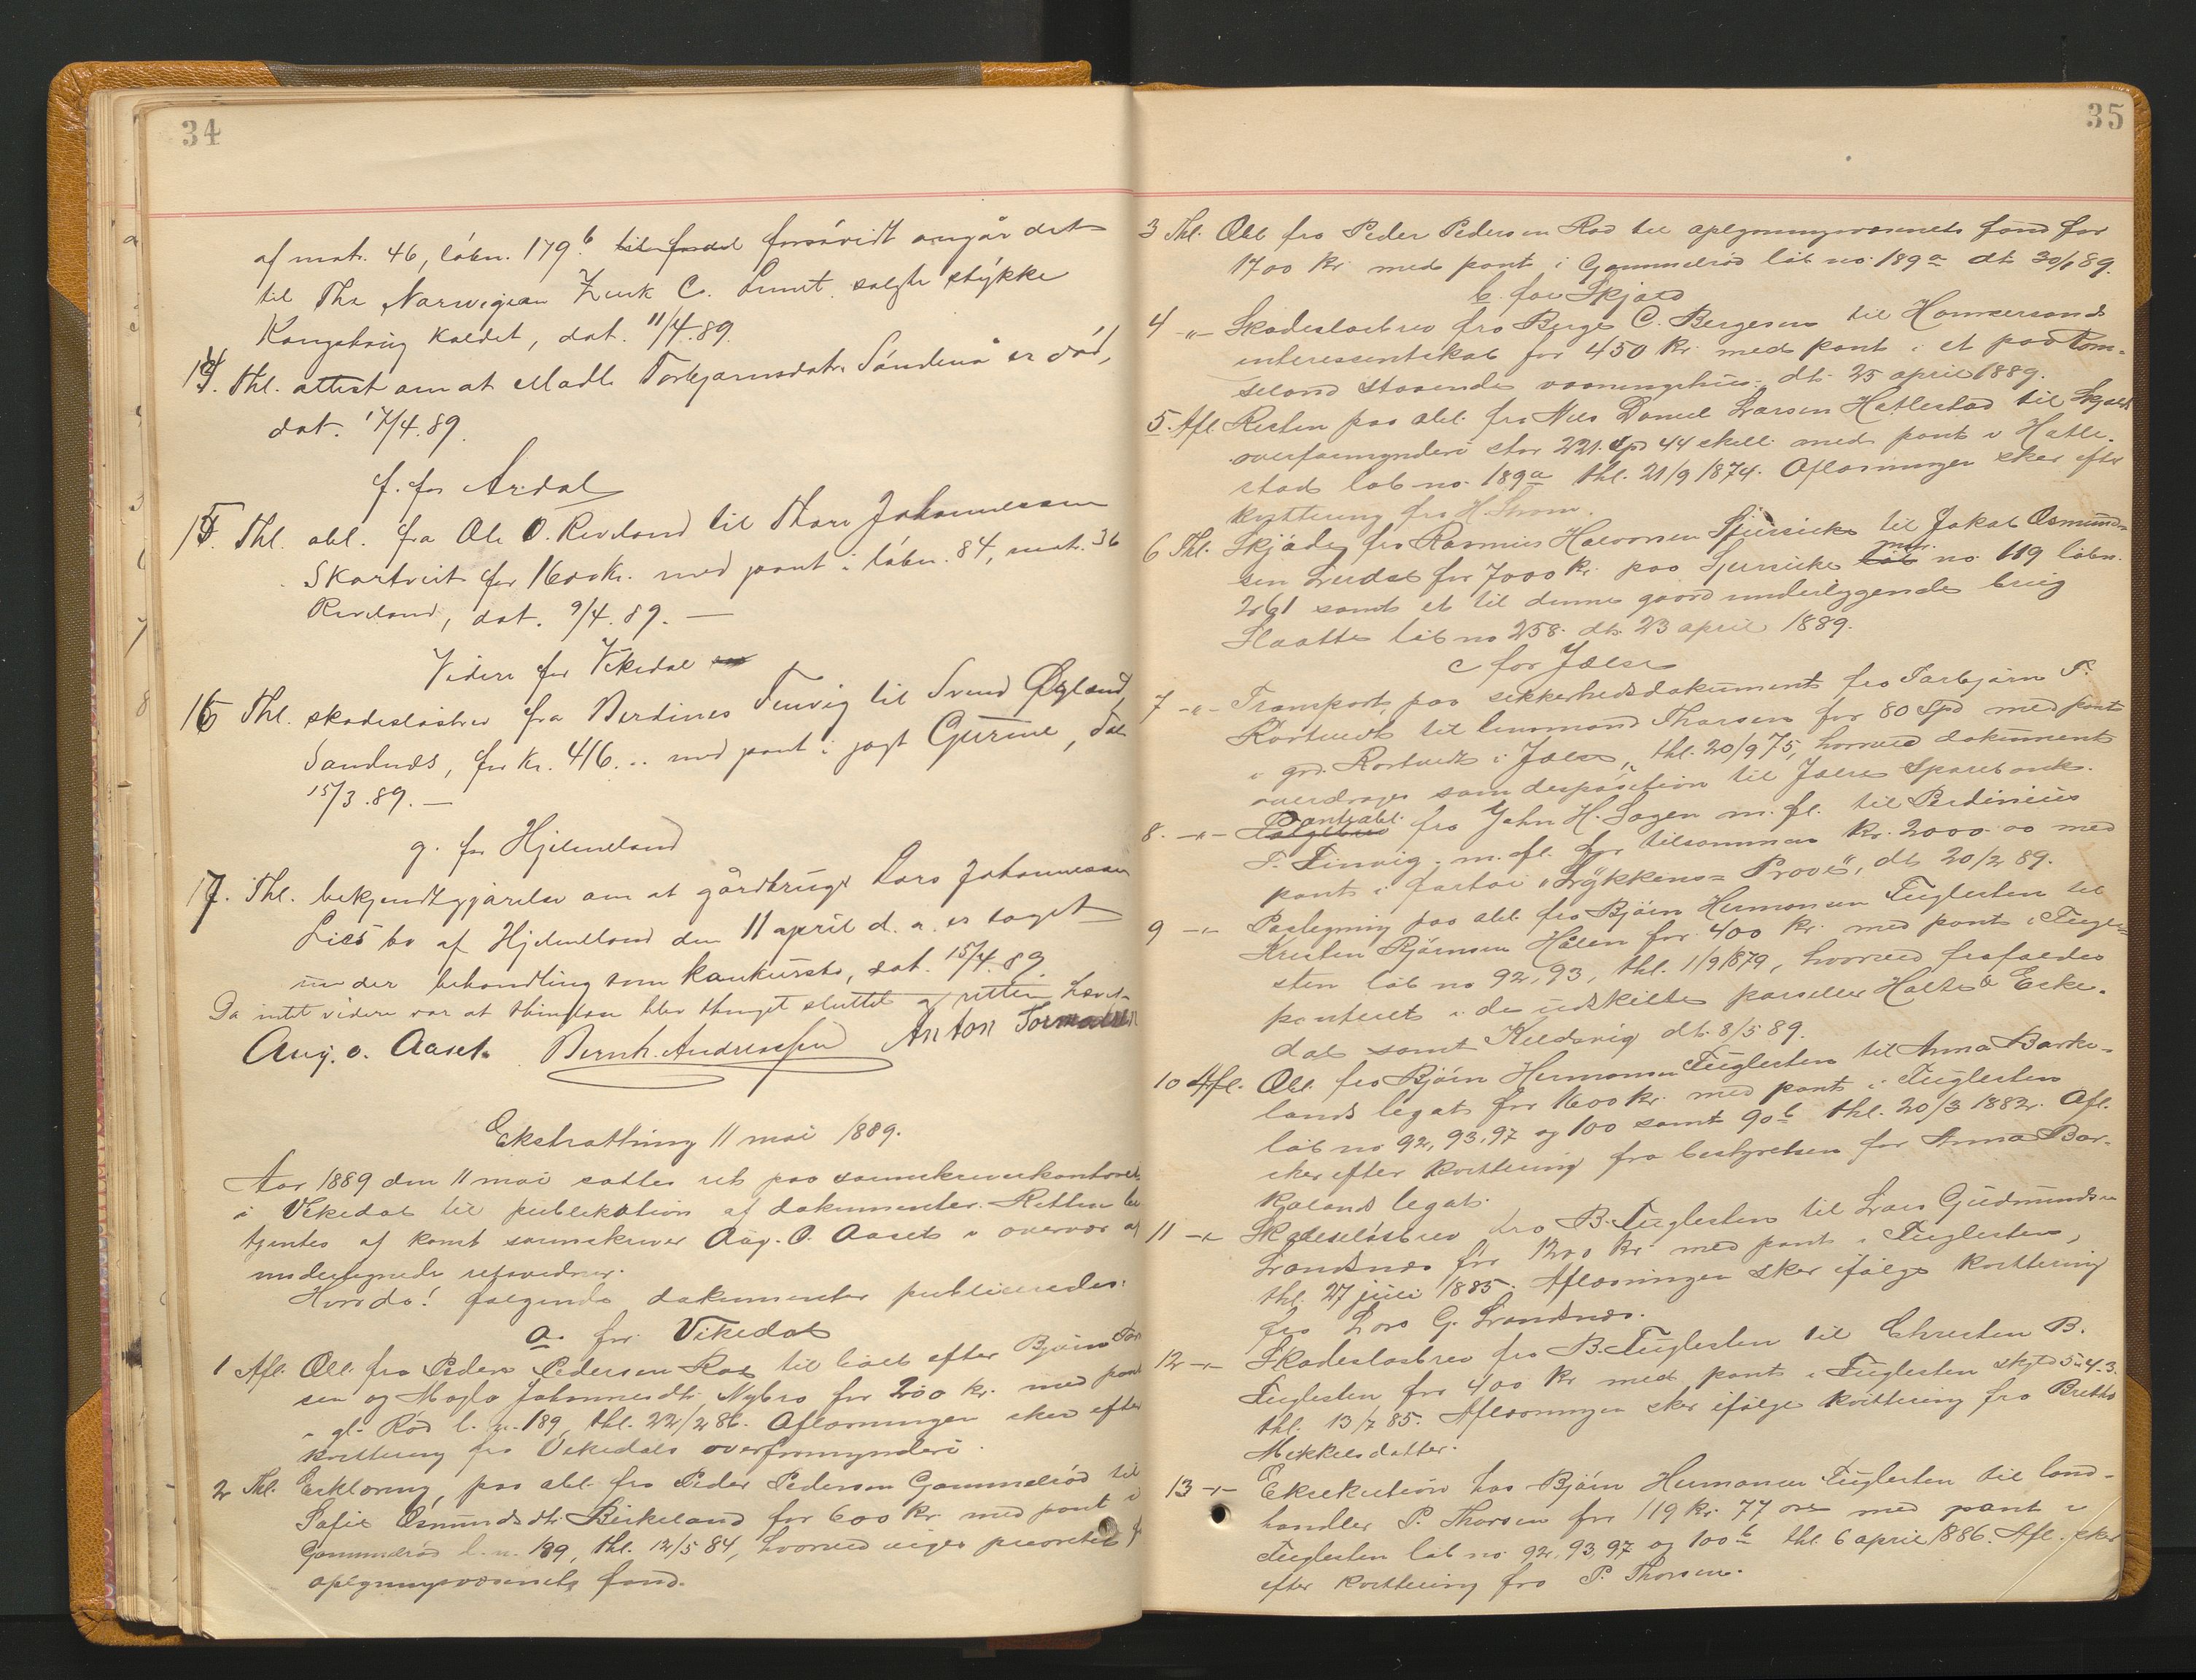 34
af matr. 46, löbn. 179 b til fradel forsåvidt angår det
til The Norwegian Zink C. Limit. solgte stykke
Kongshaug kaldet, dat. 11/4.89.
14. Thl. attest om at Madla Torbjørnsdatr. Söndenå er död,
dat. 17/4.89.
f. for Årdal
15. Thl. obl. fra Ole O. Riveland til Thore Johannessen
Skartveit for 1600 kr. med pant i löbn. 84, matr. 36
Riveland, dat. 9/4.89. —
Videre for Vikedal
16 Thl. skadeslösbrev fra Berdines Tenvig til Svend Øigland,
Sandnæs, for kr. 416... med pant i jagt Gurine, dat
15/3.89. —
g. for Hjelmeland
17. Thl. bekjendtgjörelse om at gårdbruger Lars Johannessen
Liens bo af Hjelmeland den 11 april d. a. er taget
under behandling som konkursbo, dat. 15/4.89.
Da intet videre var at thinglæse blev thinget sluttet og retten hævet.
Aug. O. Aaset. Bernh. Andreassen Anton Tormodsen
Ekstratthing 11 mai 1889.
Aar 1889 den 11 mai sattes ret paa sorenskriverkontoret
i Vikedal til publikation af dokumenter. Retten be
tjentes af konst sorenskriver Aug. O. Aaset i overvær af
undertegnede retsvidner.
Hvorda! fölgende dokumenter publiceredes:
a. for Vikedal
1 Afl. Obl. fra Peder Pedersen Rød til boet efter Bjørn Tor
sen og Magla Johannesdtr. Nybro for 200 kr. med pant
i gl. Röd l. n. 189, thl. 22/2 86. Aflæsningen sker efter
kvittering fra Vikedals overformynderi.
2 Thl. Erklæring paa obl. fra Peder Pedersen Gammelröd til
Sofie Osmundsdtr. Birkeland for 600 kr. med pant i
Gammelröd l. n. 189, thl. 12/5 84, hvorved viges prioritet f
oplysningsvæsenets fond.
35
3 Thl. Obl. fra Peder Pedersen Rød til oplysningsvæsenets fond for
1700 kr. med pant i Gammelröd löb no. 189 a dt. 30/1 89.
b. for Skjold
4 -"- Skadeslösbrev fra Berge C. Bergesen til Hommersands
interessentskab for 450 kr. med pant i et paa Tom-
seland staaende vaaningshus. dt. 25 april 1889.
5. Afl. Resten paa obl. fra Nils Daniel Larsen Hatlestad til Skjold
overformynderi stor 221 Spd 44 skill. med pant i Hatle-
stad löb no. 189 a thl. 21/9 1874. Aflæsningen sker efter
kvittering fra H. Strøm.
6 Thl. Skjöde fra Rasmus Halvorsen Sjursike til Jakob Osmund-
sen Lindal for 7000 kr. paa Sjursike löb matr. no 119 löbn.
261 samt et til denne gaard underliggende brug
Slaatte löb no 258. dt. 23 april 1889.
c for Jælse
7 -"- Transport paa sikkerhedsdokument fra Torbjörn T.
Rortvedt til lensmand Thorsen for 80 Spd med pant
i grd. Rortvedt i Jælse, thl. 20/9 75, hvorved dokument
overdrages som desposition til Jælse Sparebank.
8. -"- Følgebrev Pantobl. fra John H. Sagen m. fl. til Berdinius
T. Tinvig m. fl. for tilsammen kr. 2000.00 med
pant i fartøi "Lykkens= Prøve", dt. 20/2 89.
9 -"- Paategning paa obl. fra Björn Hermansen Fuglesten til
Kristen Björnsen Hålen for 400 kr. med pant i Fugle=
sten löb no 92, 93, thl. 1/9 1879, hvorved frafaldes
panteret i de udskilte parseller Holte & Eske-
dal samt Kildevig dt. 8/5 89.
10 Afl. Obl. fra Björn Hermansen Fuglesten til Anna Barke-
lands legat for 1600 kr. med pant i Fuglesten
löb no 92, 93, 97 og 100 samt 90 b thl. 20/3 1882. Afl.
sker efter kvittering fra bestyrelsen for Anna Bar-
kjalands legat.
11 -"- Skadeslösbrev fra B. Fuglesten til Lars Gudmundsen
Sandsnæs for 1200 kr. med pant i Fuglesten,
thl. 27 juli 1885. Aflæsningen sker ifölge kvittering
fra Lars G. Sandsnæs.
12 -"- Skadeslösbrev fra B. Fuglesten til Christen B.
Fuglesten for 400 kr med pant i Fuglesten skyld 5.4.3.
thl. 13/7 85. Aflæsningen sker ifölge kvittering fra Bretha
Mikkelsdatter.
13 -"- Eksekution hos Björn Hermansen Fuglesten til land-
handler P. Thorsen for 119 kr. 77 øre med pant i
Fuglesten löb no. 92, 93, 97 og 100 b thl. 6 april 1886. Afl. sker
efter kvittering fra P. Thorsen.